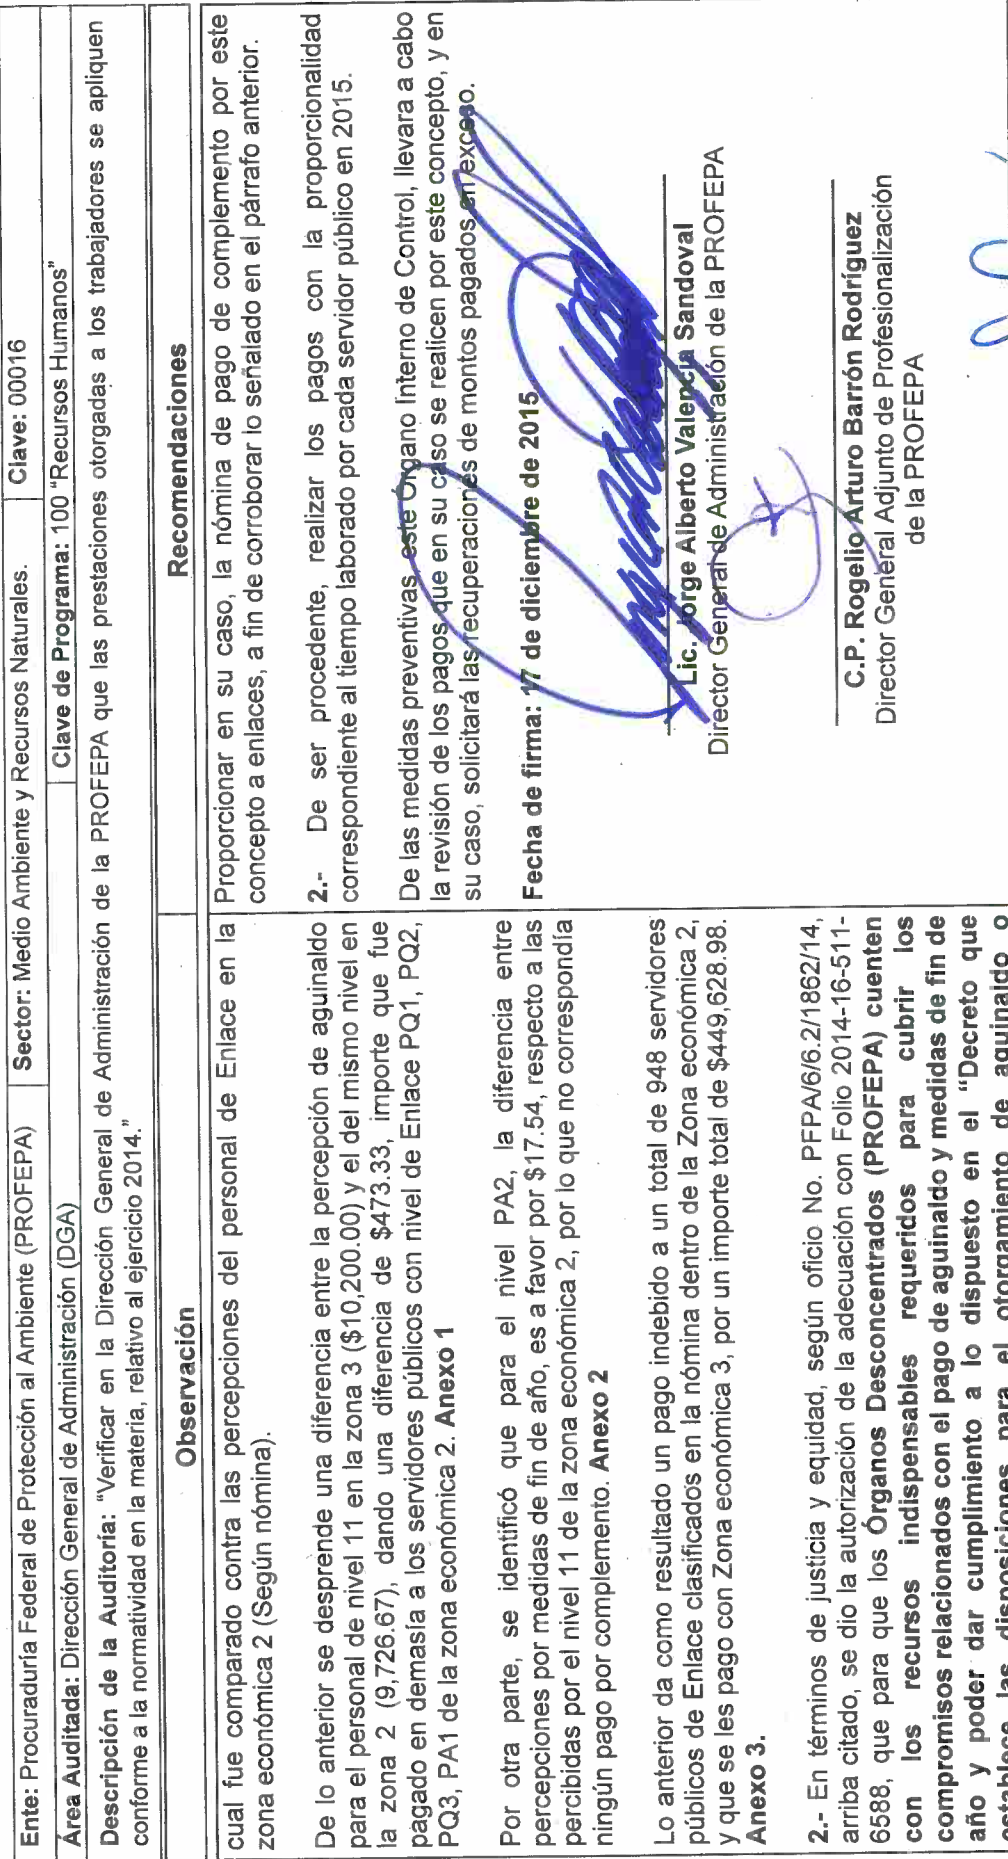 Ente: Procuraduría Federal de Protección al Ambiente (PROFEPA) Sector: Medio Ambiente y Recursos Naturales. Clave: 00016
Área Auditada: Dirección General de Administración (DGA) Clave de Programa: 100 "Recursos Humanos"
Descripción de la Auditoría: "Verificar en la Dirección General de Administración de la PROFEPA que las prestaciones otorgadas a los trabajadores se apliquen
conforme a la normatividad en la materia, relativo al ejercicio 2014."
Observación
cual fue comparado contra las percepciones del personal de Enlace en la
zona económica 2 (Según nómina).
De lo anterior se desprende una diferencia entre la percepción de aguinaldo
para el personal de nivel 11 en la zona 3 ($10,200.00) y el del mismo nivel en
la zona 2 (9,726.67), dando una diferencia de $473.33, importe que fue
pagado en demasía a los servidores públicos con nivel de Enlace PQ1, PQ2,
PQ3, PA1 de la zona económica 2. Anexo 1
Por otra parte, se identificó que para el nivel PA2, la diferencia entre
percepciones por medidas de fin de año, es a favor por $17.54, respecto a las
percibidas por el nivel 11 de la zona económica 2, por lo que no correspondía
ningún pago por complemento. Anexo 2
Lo anterior da como resultado un pago indebido a un total de 948 servidores
públicos de Enlace clasificados en la nómina dentro de la Zona económica 2,
y que se les pago con Zona económica 3, por un importe total de $449,628.98.
Anexo 3.
2.- En términos de justicia y equidad, según oficio No. PFPA/6/6.2/1862/14,
arriba citado, se dio la autorización de la adecuación con Folio 2014-16-511-
6588, que para que los Órganos Desconcentrados (PROFEPA) cuenten
con los recursos indispensables requeridos para cubrir los
compromisos relacionados con el pago de aguinaldo y medidas de fin de
año y poder dar cumplimiento a lo dispuesto en el "Decreto que
establece las disposiciones para el otorgamiento de aguinaldo o
Recomendaciones
Proporcionar en su caso, la nómina de pago de complemento por este
concepto a enlaces, a fin de corroborar lo señalado en el párrafo anterior.
2.- De ser procedente, realizar los pagos con la proporcionalidad
correspondiente al tiempo laborado por cada servidor público en 2015.
De las medidas preventivas, este Órgano Interno de Control, llevara a cabo
la revisión de los pagos que en su caso se realicen por este concepto, y en
su caso, solicitará las recuperaciones de montos pagados en exceso.
Fecha de firma: 17 de diciembre de 2015
Lic. Jorge Alberto Valencia Sandoval
Director General de Administración de la PROFEPA
C.P. Rogelio Arturo Barrón Rodríguez
Director General Adjunto de Profesionalización
de la PROFEPA